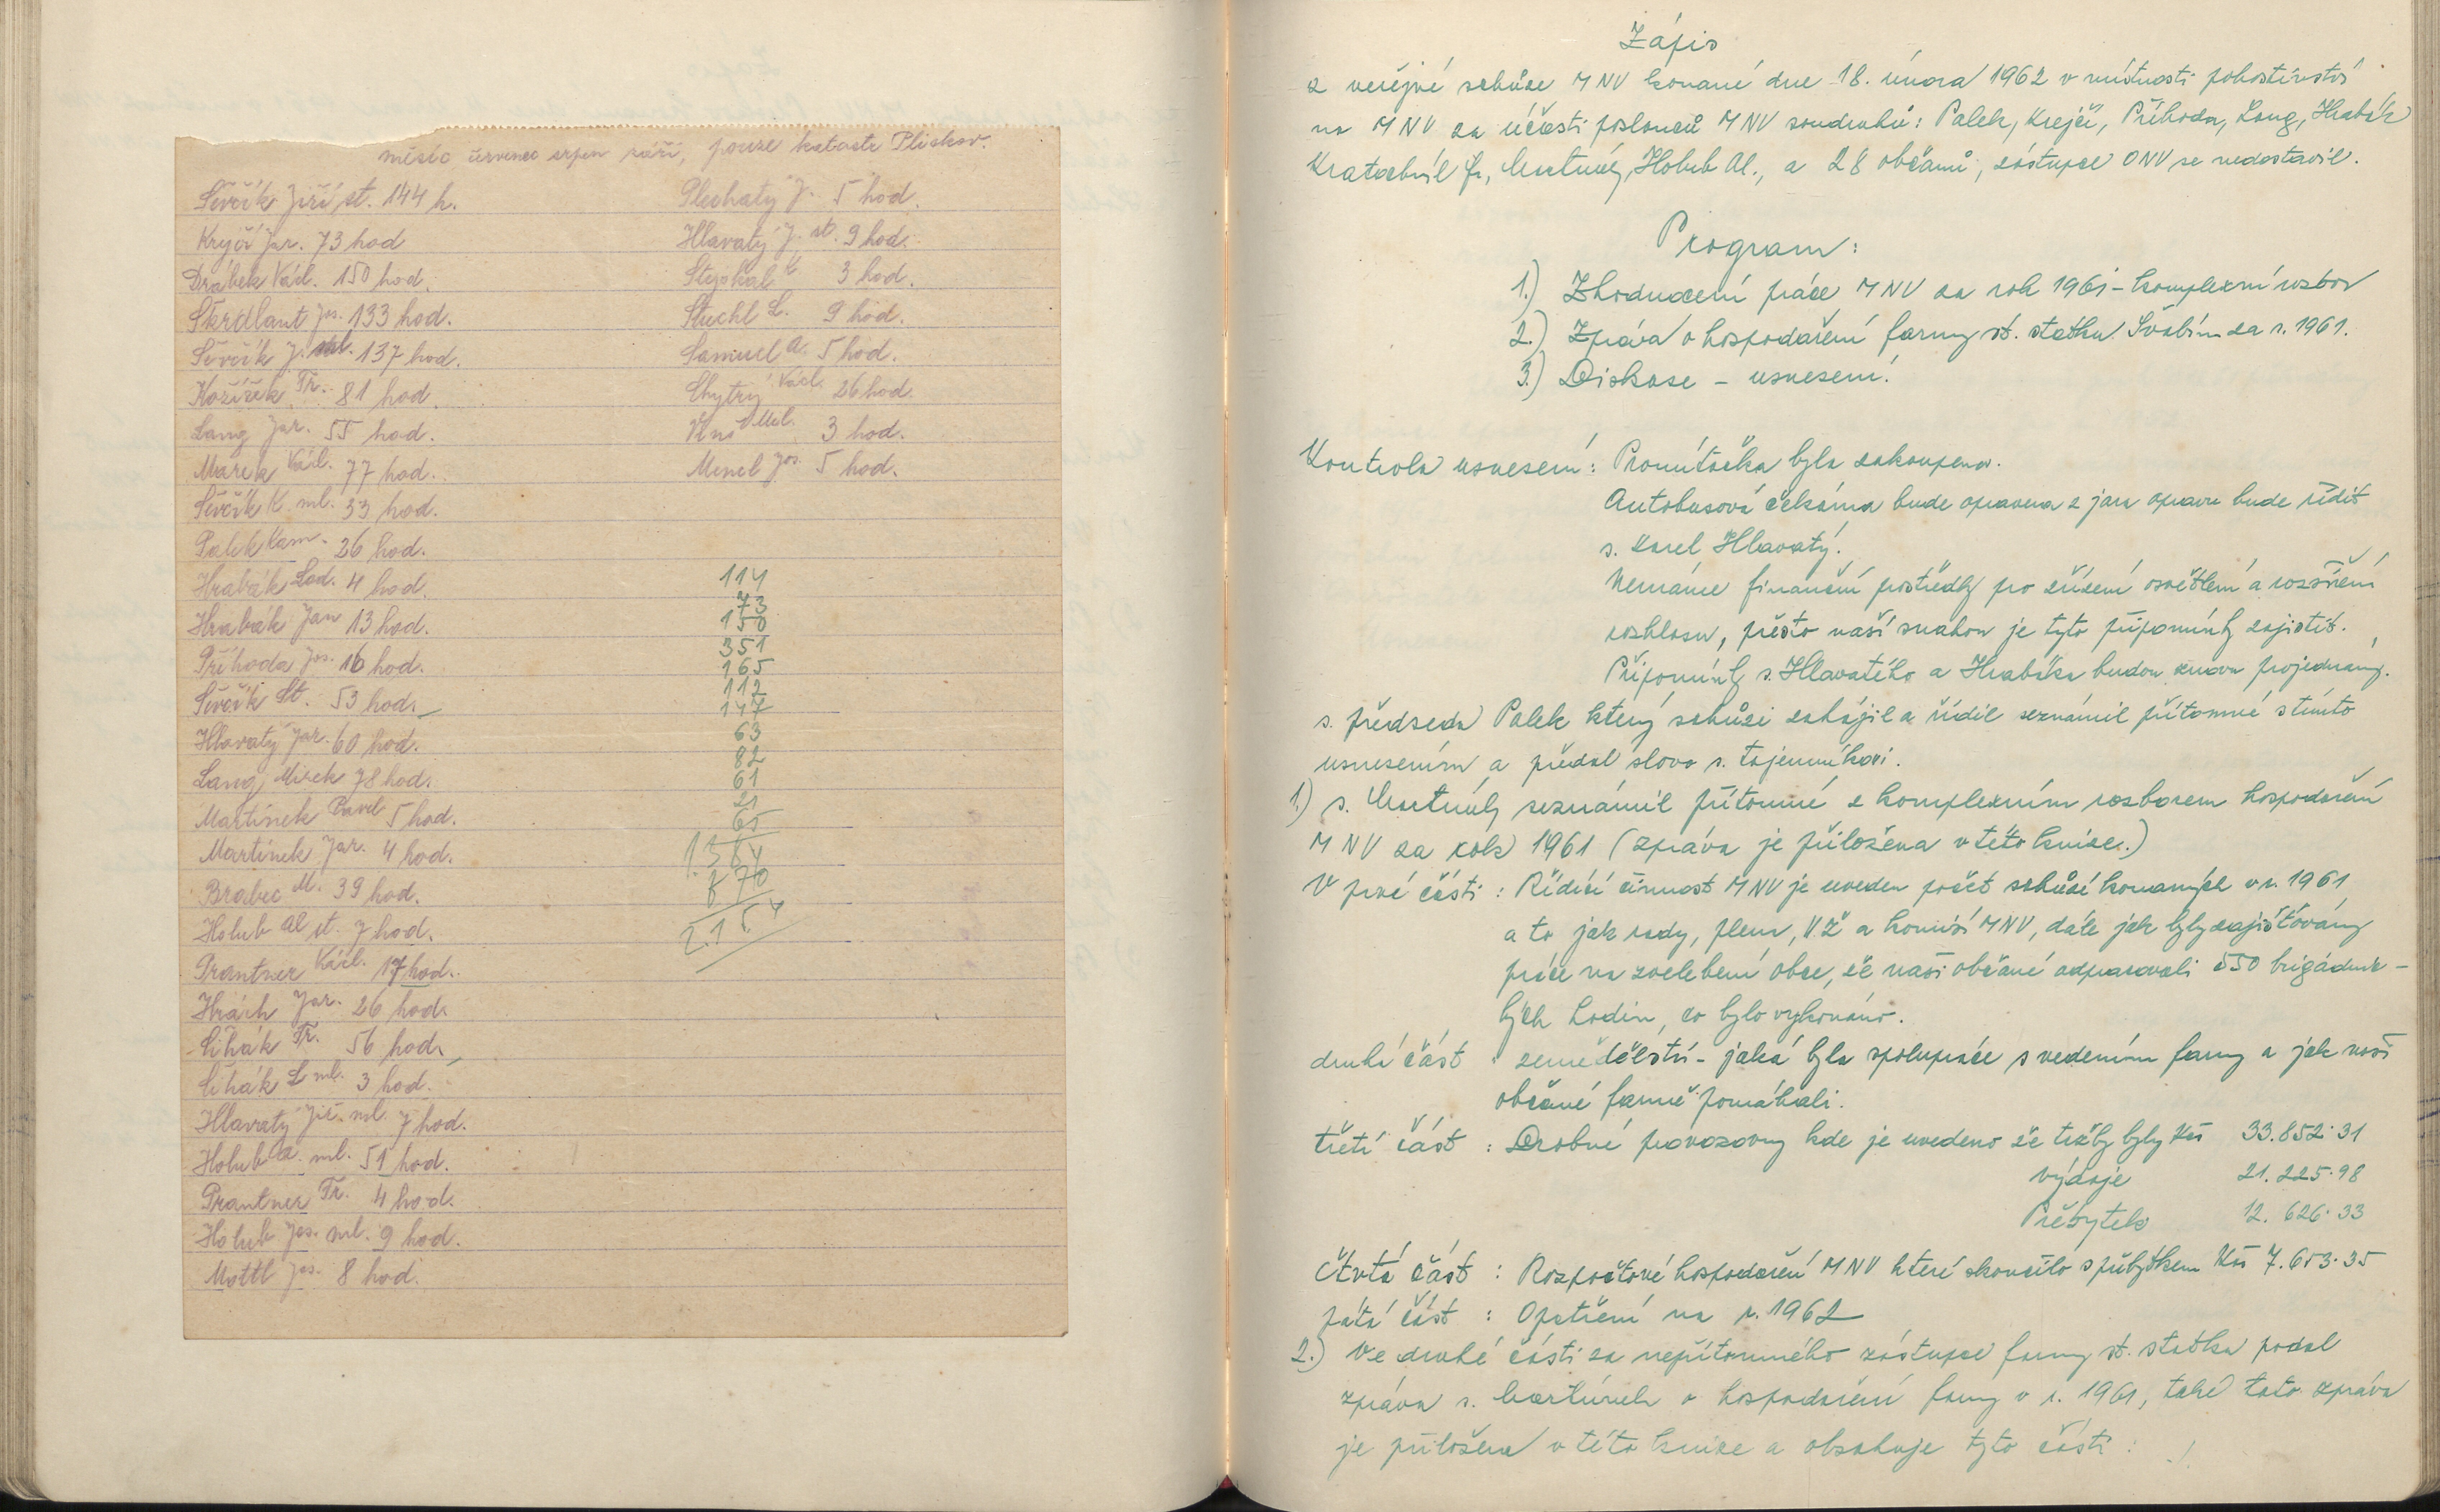 měsíc červenec srpen září, pouze katastr Pliskov.
Ševčík Jiří st. 144 h.
Krejčí Jar. 73 hod
Drábek Václ. 150 hod.
Škrdlant Jos. 133 hod.
Ševčík J. ml. 137 hod.
Kožíšek Fr. 81 hod.
Lang Jar. 55 hod.
Marek Václ. 77 hod.
Ševčík K. ml. 33 hod.
Palek Kam. 26 hod.
Hrabák Lad. 4 hod.
Hrabák Jan 13 hod.
Příhoda Jos. 16 hod.
Ševčík St. 53 hod.
Hlavatý Jar. 60 hod.
Lang Mirek 78 hod.
Martínek Pavel 5 hod.
Martínek Jar. 4 hod.
Brabec M. 39 hod.
Holub Al st. 7 hod.
Prantner Václ. 17 hod.
Hrách Jar. 26 hod.
Cihák Fr. 56 hod.
Cihák L ml. 3 hod.
Hlavatý Jiř. ml. 7 hod.
Holub A. ml. 51 hod.
Prantner Fr. 4 hod.
Holub Jos. ml. 9 hod.
Mottl Jos. 8 hod.
Plechatý J. 5 hod.
Hlavatý J. st. 9 hod.
Stejskal 3 hod.
Stuchl L. 9 hod.
Samuel A. 5 hod.
Chytrý Václ. 26 hod.
3 hod.
Mencl Jos. 5 hod.
114
73
150
351
165
112
147
63
82
61
21
65
1.364
870
2.15
Zápis
z veřejné schůze MNV konané dne 18. února 1962 v místnosti pohostinství
na MNV za účasti poslanců MNV soudruhů: Palek, Krejčí, Příhoda, Lang, Hrabák
Kratochvíl Jr, Martínek, Holub Al., a 28 občanů, zástupce ONV se nedostavil.
Program:
1.) Zhodnocení práce MNV za rok 1961 - komplexní rozbor
2.) Zpráva o hospodaření farmy st. statku Švabín za r. 1961.
3.) Diskuse - usnesení.
Kontrola usnesení: Promítačka byla zakoupena.
Autobusová čekárna bude opravena z jara opravu bude řídit
s. Karel Hlavatý.
Nemáme finanční prostředky pro zřízení osvětlení a rozšíření
rozhlasu, přesto naší snahou je tyto připomínky zajistit.
Připomínky s. Hlavatého a Hrabáka budou znovu projednány.
s. předseda Palek který schůzi zahájil a řídil seznámil přítomné s tímto
usnesením a předal slovo s. tajemníkovi.
1.) s. Martínek seznámil přítomné s komplexním rozborem hospodaření
MNV za rok 1961 (zpráva je přiložena v této knize.)
V prvé části: Řídící činnost MNV je uveden počet schůzí konaných v r. 1961
a to jak rady, plena, VŽ a komisí MNV, dále jak byly zajišťovány
práce na zvelebení obce, že naši občané odpracovali 550 brigádnic-
kých hodin, co bylo vykonáno.
druhá část : zemědělství - jaká byla spolupráce s vedením farmy a jak naši
občané farmě pomáhali.
třetí část : Drobné provozovny kde je uvedeno že tržby byly Kčs 33.852.31
výdaje 21.225.98
Přebytek 12.626.33
čtvrtá část : Rozpočtové hospodaření MNV které skončilo s přebytkem Kčs 7.653.35
pátá část : Opatření na r. 1962
2.) Ve druhé části za nepřítomného zástupce farmy st. statku podal
zprávu s. Martínek o hospodaření farmy v r. 1961, také tato zpráva
je přiložena v této knize a obsahuje tyto části :